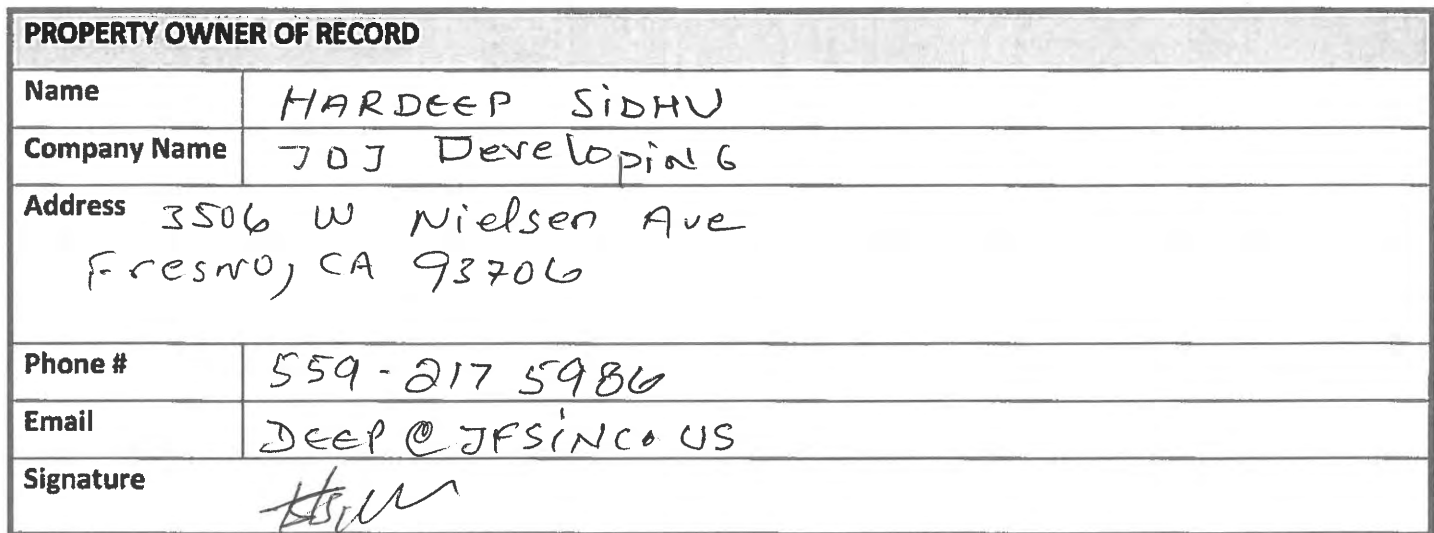 PROPERTY OWNER OF RECORD
Name HARDEEP SiDHU
Company Name JDJ DeveLopiNG
Address 3506 W Nielsen Ave
FresNO, CA 93706
Phone # 559-217 5986
Email DEEP@JFSiNC.US
Signature